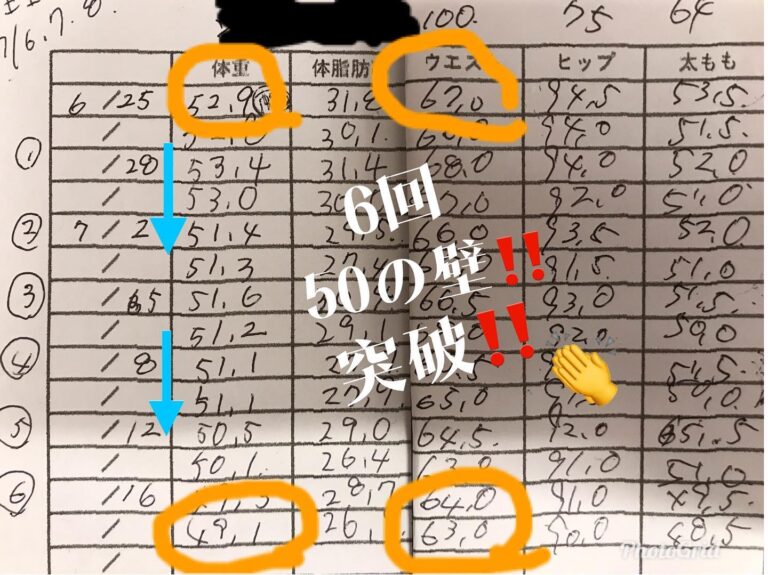 7/6.7.8
100. 75 64
体重 体脂肪 ウエス ヒップ 太もも
6/25 52,9 31, 67,0 94,5 53,5
/ 30,1 94,0 51,5
① /28 53,4 31,4 68,0 94,0 52,0
/ 53,0 92,0 51,0
② 7/2 51,4 66,0 93,5 52,0
/ 51,3 91,5 51,0
③ /5 51,6 93,0 51,5
/ 51,2 29,1 92,0
④ /8 51,1
/ 51,1 65,0
⑤ /12 50,5 29,0 64,5 92,0 51,5
/ 50,1 26,4 63,0 91,0 51,0
⑥ /16 28,7 64,0 91,0 49,5
/ 49,1 26, 63,0 90,0 48,5
6回
50の壁‼
突破‼
PhotoGrid